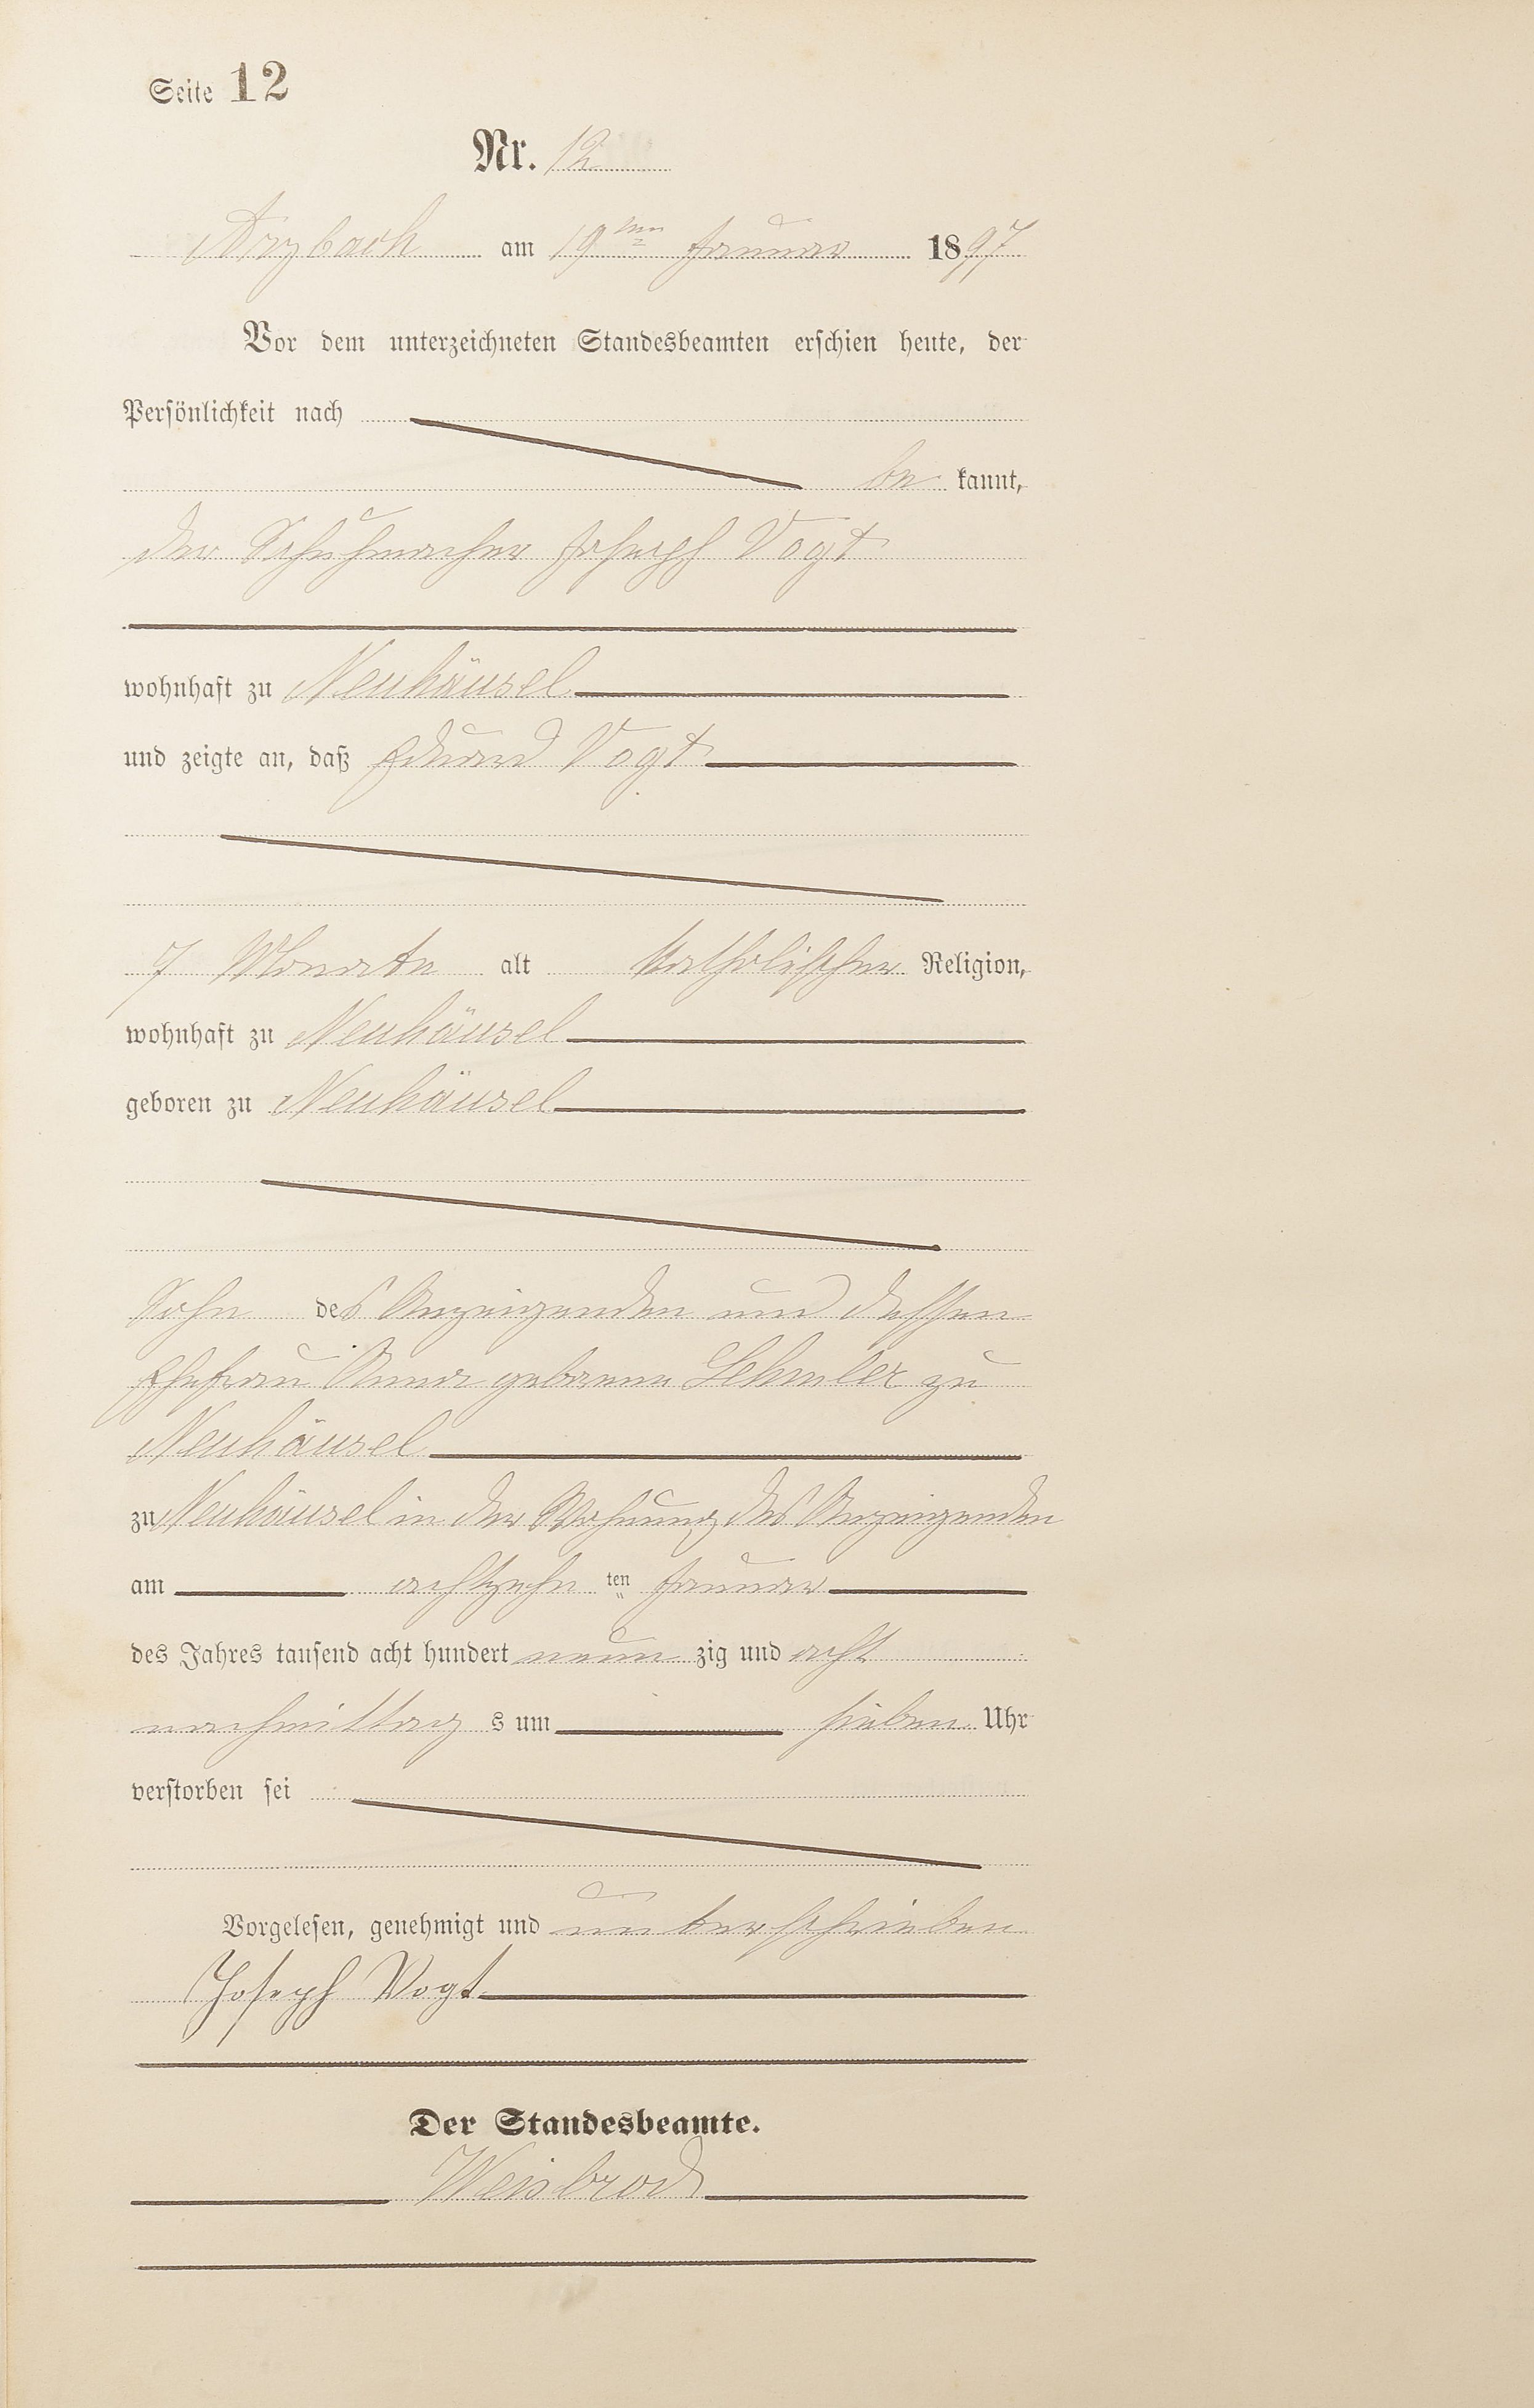 Seite 12
Nr. 12
Arzbach am 19ten Januar 1897
Vor dem unterzeichneten Standesbeamten erschien heute, der
Persönlichkeit nach
be kannt,
der Schuhmacher Joseph Vogt
wohnhaft zu Neuhäusel
und zeigte an, daß Eduard Vogt
7 Monate alt katholischer Religion,
wohnhaft zu Neuhäusel
geboren zu Neuhäusel
Sohn des Anzeigenden und dessen
Ehefrau Anna geborene zu
Neuhäusel
zu Neuhäusel in der Wohnung des Anzeigenden
am achtzehn ten Januar
des Jahres tausend acht hundert neun zig und acht
nachmittag s um sieben Uhr
verstorben sei
Vorgelesen, genehmigt und unterschrieben
Joseph Vogt
Der Standesbeamte.
Weisbrod